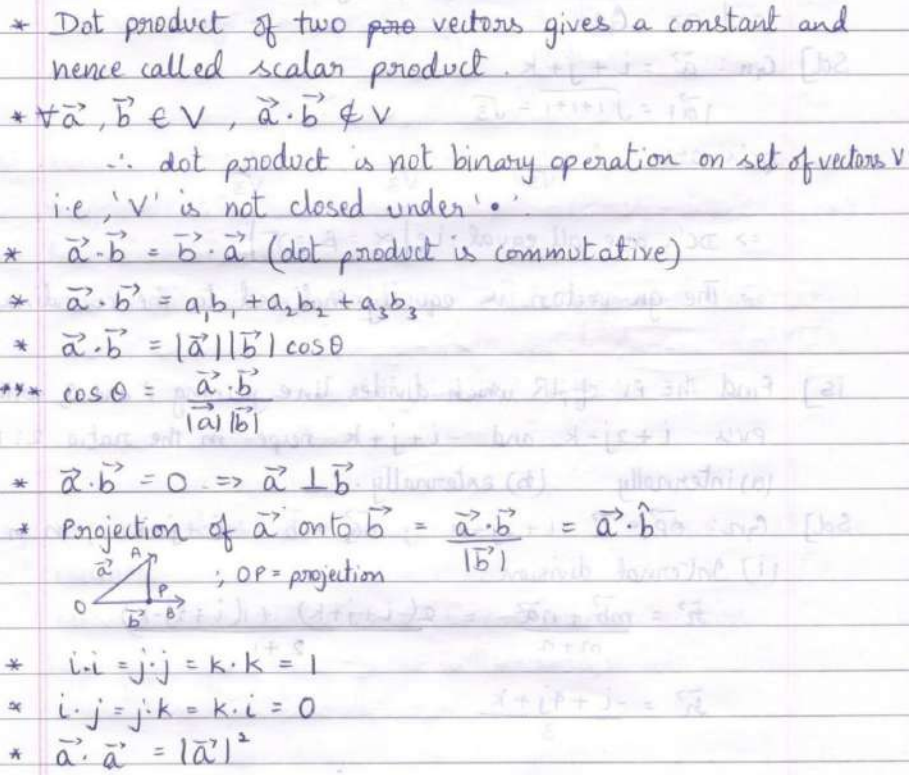 * Dot product of two pro vectors gives a constant and
hence called scalar product.
* ∀a⃗, b⃗ ∈ V, a⃗·b⃗ ∉ V
∴ dot product is not binary operation on set of vectors V
i.e, 'V' is not closed under '•'.
* a⃗·b⃗ = b⃗·a⃗ (dot product is commutative)
* a⃗·b⃗ = a₁b₁ + a₂b₂ + a₃b₃
* a⃗·b⃗ = |a⃗||b⃗| cosθ
*** cosθ = a⃗·b⃗ / |a⃗||b⃗|
* a⃗·b⃗ = 0 => a⃗ ⊥ b⃗
* Projection of a⃗ onto b⃗ = a⃗·b⃗ / |b⃗| = a⃗·b̂
A a⃗ O P b⃗ B ; OP = projection
* i·i = j·j = k·k = 1
* i·j = j·k = k·i = 0
* a⃗·a⃗ = |a⃗|²